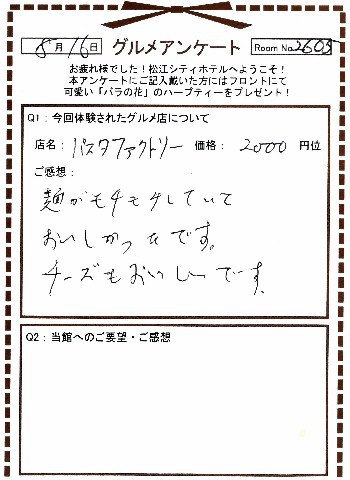 8月16日 グルメアンケート Room No.2605
お疲れ様でした！松江シティホテルへようこそ！
本アンケートにご記入戴いた方にはフロントにて
可愛い「バラの花」のハーブティーをプレゼント！
Q1：今回体験されたグルメ店について
店名：パスタファクトリー 価格：2000円位
ご感想：
麺がモチモチしていて
おいしかったです。
チーズもおいしいです。
Q2：当館へのご要望・ご感想